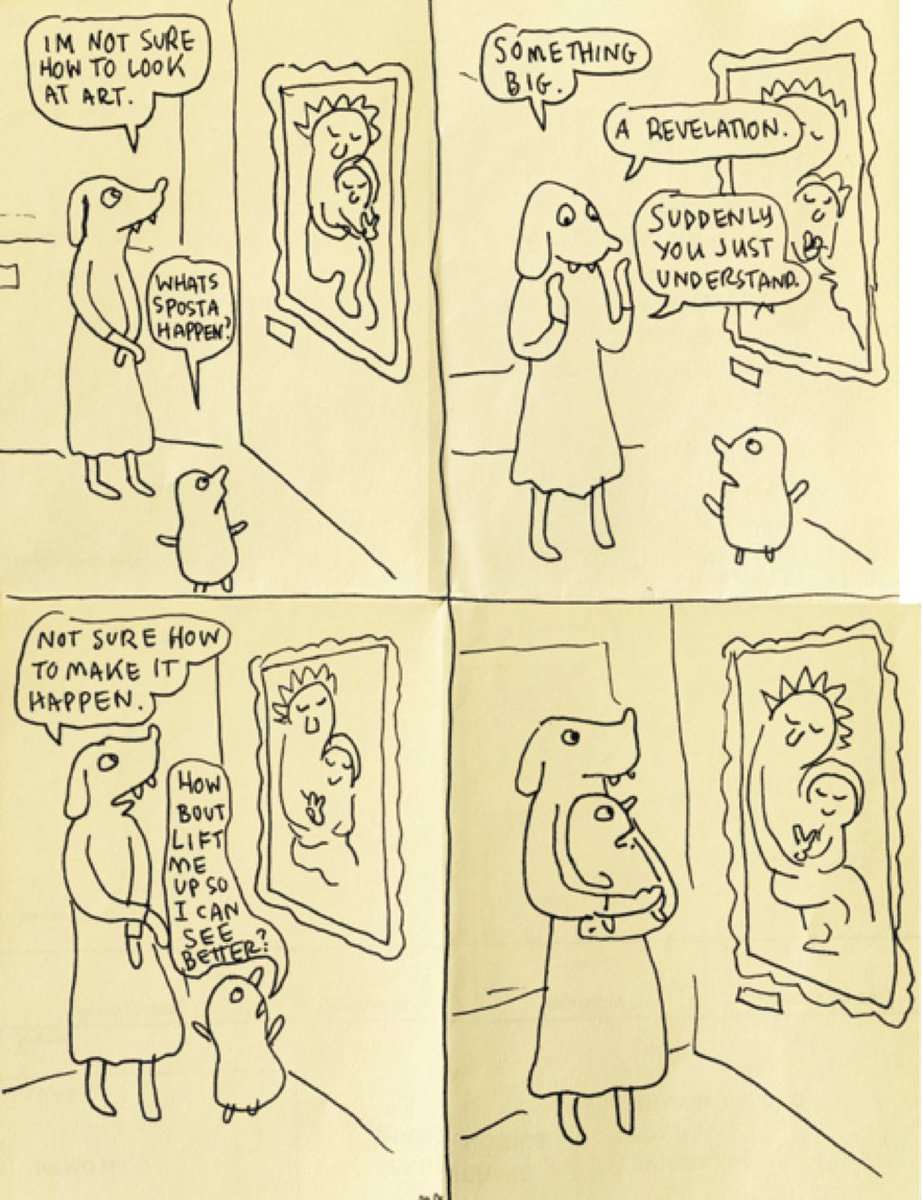 IM NOT SURE
HOW TO LOOK
AT ART.
WHATS
SPOSTA
HAPPEN?
SOMETHING
BIG.
A REVELATION.
SUDDENLY
YOU JUST
UNDERSTAND.
NOT SURE HOW
TO MAKE IT
HAPPEN.
HOW
BOUT
LIFT
ME
UP SO
I CAN
SEE
BETTER?